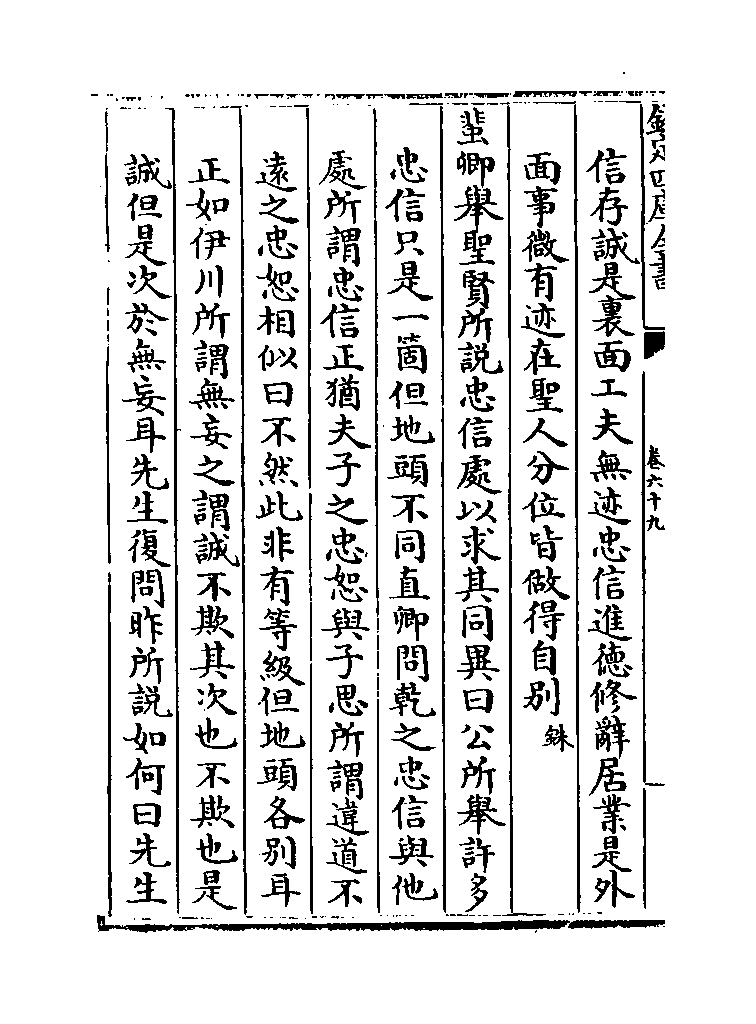 欽定四庫全書
卷六十九
信存誠是裏面工夫無迹忠信進德修辭居業是外
面事微有迹在聖人分位皆做得自别銖
蜚卿舉聖賢所説忠信處以求其同異曰公所舉許多
忠信只是一箇但地頭不同直卿問乾之忠信與他
處所謂忠信正猶夫子之忠恕與子思所謂違道不
逺之忠恕相似曰不然此非有等級但地頭各别耳
正如伊川所謂無妄之謂誠不欺其次也不欺也是
誠但是次於無妄耳先生復問昨所説如何曰先生